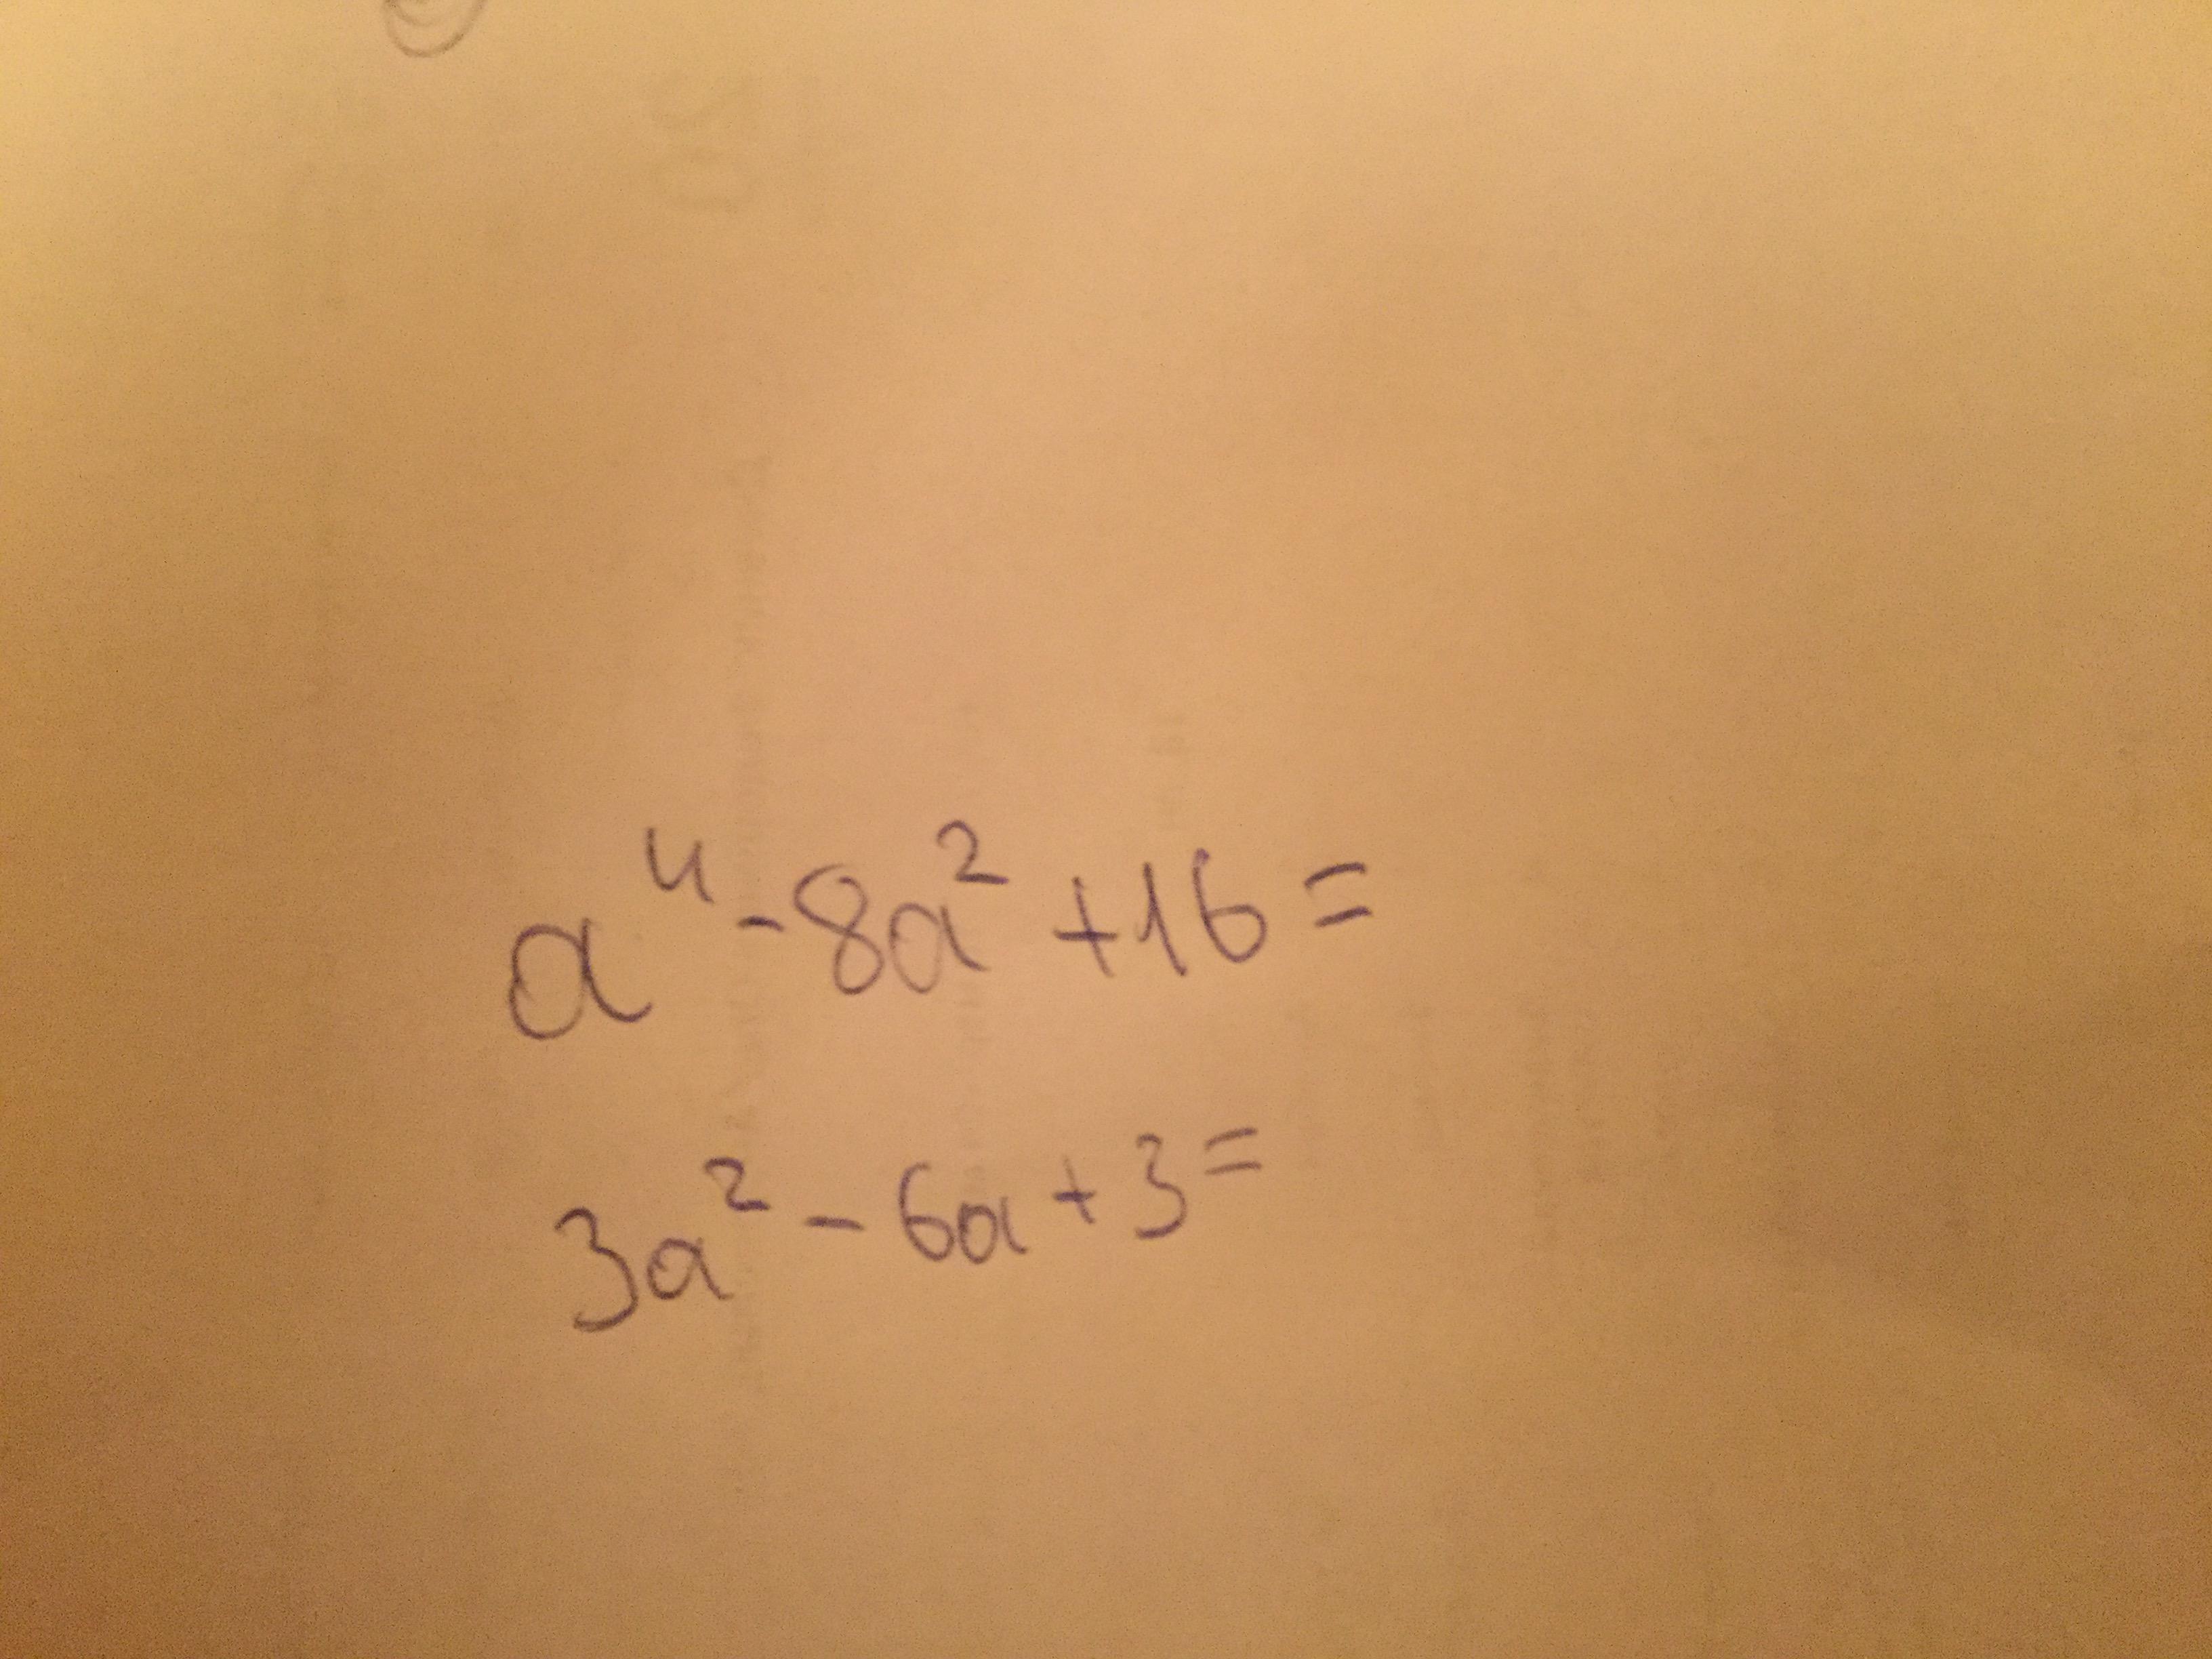 a⁴-8a²+16=
3a²-6a+3=